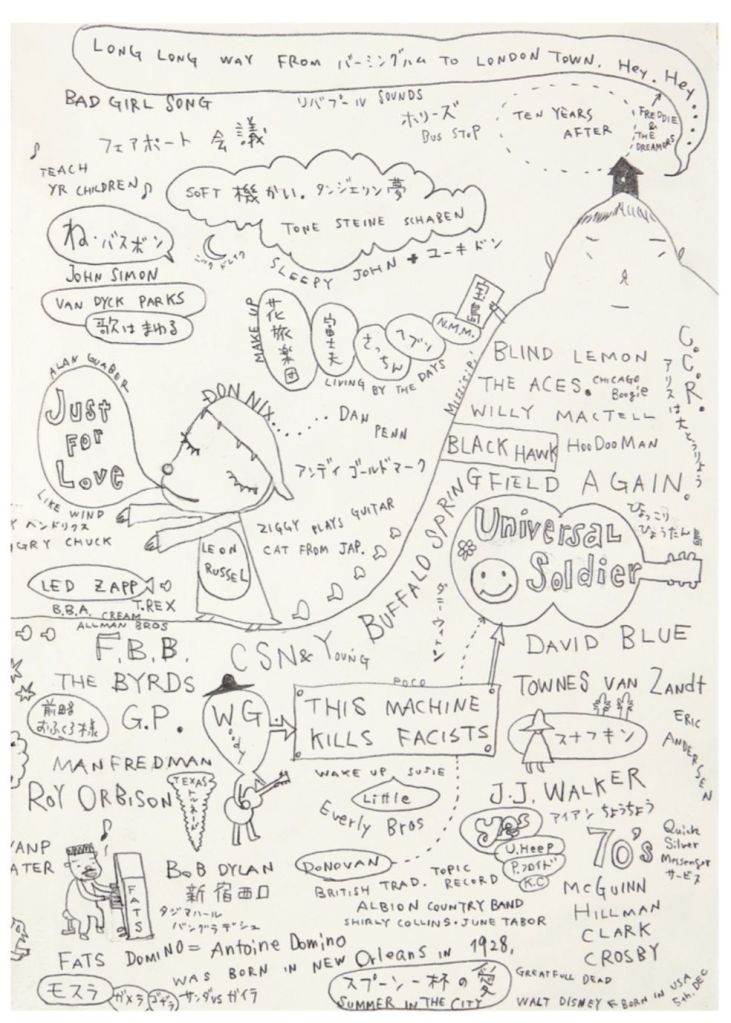 LONG LONG WAY FROM バーミングハム TO LONDON TOWN. Hey. Hey....
BAD GIRL SONG
リバプール SOUNDS
ホリーズ
BUS STOP
TEN YEARS
AFTER
FREDDIE
&
THE
DREAMORS
フェアポート 会議
♪
TEACH
YR CHILDREN♪
SOFT 機かい。タンジェリン夢
TONE STEINE SCHABEN
ね・バスボン
ニック ドレイク
SLEEPY JOHN + ユーキドン
JOHN SIMON
VAN DYCK PARKS
歌はまわる
MAKE UP
花旅楽団
富士夫
さっちん
ヘブン
N.M.M.
LIVING BY THE DAYS
Mississipi
BLIND LEMON
THE ACES.
CHICAGO
Boogie
WILLY MACTELL
BLACK HAWK
HOODOOMAN
C.C.R.
アリスは大とうりょう
ALAN GUABER
Just
For
Love
DON NIX......
DAN
PENN
アンディ ゴールドマーク
LIKE WIND
Y ベンドリクス
GRY CHUCK
ZIGGY PLAYS GUITAR
CAT FROM JAP.
LEON
RUSSEL
BUFFALO SPRINGFIELD AGAIN.
Universal
Soldier
ひょっこり
ひょうたん島
LED ZAPP
B.B.A. CREAM
T.REX
ALLMAN BROS
F.B.B.
CSN& YOUNG
ダニーウィットン
DAVID BLUE
THE BYRDS
POCO
TOWNES VAN Zandt
前略
おふくろ様
G.P.
WG
ody
THIS MACHINE
KILLS FACISTS
スナフキン
ERIC
ANDERSEN
MANFREDMAN
ROY ORBISON
TEXAS
トルネード
WAKE UP SUSIE
Little
Everly Bros
J.J. WALKER
アイアン ちょうちょう
yes
U.HEEP
P.フロイド
K.C
70's
Quick
Silver
Messenger
サービス
ANP
ATER
♪
FATS
BOB DYLAN
新宿西口
タジマハール
バングラデシュ
DONOVAN
BRITISH TRAD.
TOPIC
RECORD
ALBION COUNTRY BAND
SHIRLY COLLINS・JUNE TABOR
McGUINN
HILLMAN
CLARK
CROSBY
FATS DOMINO = Antoine Domino
WAS BORN IN NEW Orleans IN 1928,
モスラ
ガメラ
ゴジラ
サンダ VS ガイラ
スプーン一杯の愛
SUMMER IN THE CITY
GREATFULL DEAD
WALT DISNEY ← BORN IN USA
5th. DEC